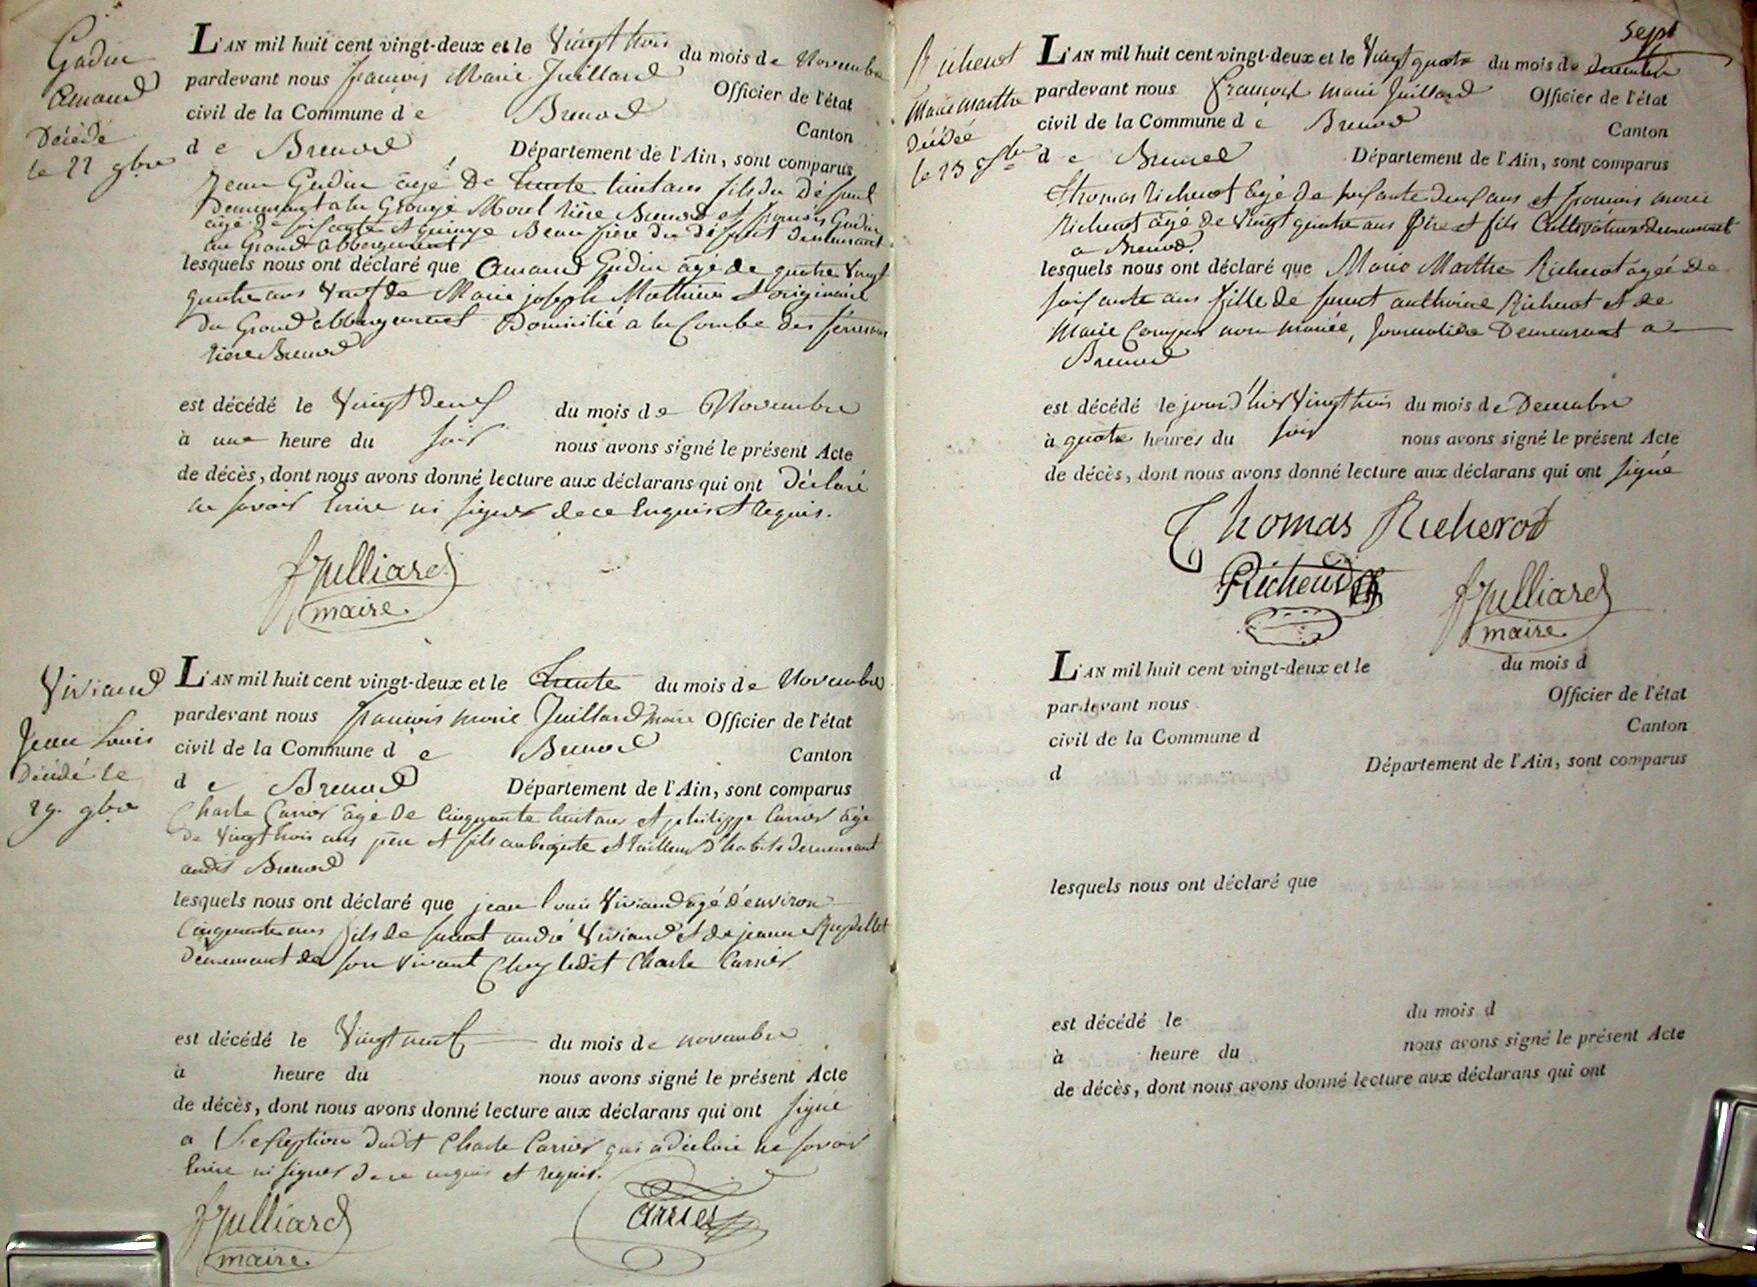 Gadin
Amand
Décédé
le 22 9bre
L'AN mil huit cent vingt-deux et le Vingt trois du mois de Novembre
pardevant nous françois Marie Juillard Officier de l'état
civil de la Commune d e Brenod Canton
d e Brenod Département de l'Ain, sont comparus
Jean Gadin âgé de trente huit ans fils du défunt
demeurant a la Grange Morel rière Brenod et françois Gadin
âgé de soisante et quinze Beau frère du défunt demeurant
au Grand abbergement
lesquels nous ont déclaré que Amand Gadin âgé de quatre Vingt
quatre ans Veuf de Marie joseph Mathieu et originaire
du Grand abbergement Domicilié a la Combe des
rière Brenod
est décédé le Vingt deux du mois de Novembre
à une heure du soir nous avons signé le présent Acte
de décès, dont nous avons donné lecture aux déclarans qui ont déclaré
ne savoir Ecrire ni signer de ce Enquis et requis.
fJulliard
maire.
Viviand
Jean Louis
Décédé le
29. 9bre
L'AN mil huit cent vingt-deux et le Trente du mois de Novembre
pardevant nous françois marie Juillard maire Officier de l'état
civil de la Commune d e Brenod Canton
d e Brenod Département de l'Ain, sont comparus
Charle Carrier âgé de Cinquante huit ans et philippe Carrier âgé
de Vingt trois ans père et fils aubergiste et tailleur d'habits demeurant
audit Brenod
lesquels nous ont déclaré que jean louis Viviand agé d'environ
Cinquante ans fils de funt andré Viviand et de jeanne
Demeurant de son vivant Chez ledit Charle Carrier
est décédé le Vingt neuf du mois de novembre
à heure du nous avons signé le présent Acte
de décès, dont nous avons donné lecture aux déclarans qui ont signé
a l'Exception dudit Charle Carrier qui a déclaré ne savoir
Ecrire ni signer de ce enquis et requis.
fJulliard
maire.
Carrier
Sept
Richerot
Marie Marthe
Décédée
le 23
L'AN mil huit cent vingt-deux et le Vingt quatre du mois de Decembre
pardevant nous François marie Juillard Officier de l'état
civil de la Commune d e Brenod Canton
d e Brenod Département de l'Ain, sont comparus
Thomas Richerot âgé de soisante deux ans et françois marie
Richerot âgé de Vingt quatre ans père et fils Cultivateurs demeurant
a Brenod
lesquels nous ont déclaré que Marie Marthe Richerot agée de
soisante ans fille de funt anthoine Richerot et de
Marie non mariée, Journalière Demeurant a
Brenod
est décédé le jour d'hier Vingt trois du mois de Decembre
à quatre heures du soir nous avons signé le présent Acte
de décès, dont nous avons donné lecture aux déclarans qui ont signé
Thomas Richerot
Richerot
fJulliard
maire.
L'AN mil huit cent vingt-deux et le du mois d
pardevant nous Officier de l'état
civil de la Commune d Canton
d Département de l'Ain, sont comparus
lesquels nous ont déclaré que
est décédé le du mois d
à heure du nous avons signé le présent Acte
de décès, dont nous avons donné lecture aux déclarans qui ont